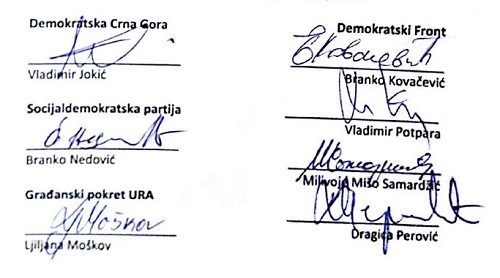 Demokratska Crna Gora
Vladimir Jokić
Socijaldemokratska partija
Branko Nedović
Građanski pokret URA
LjMoškov
Ljiljana Moškov
Demokratski Front
Branko Kovačević
Vladimir Potpara
Milivoje Mišo Samardžić
Dragica Perović